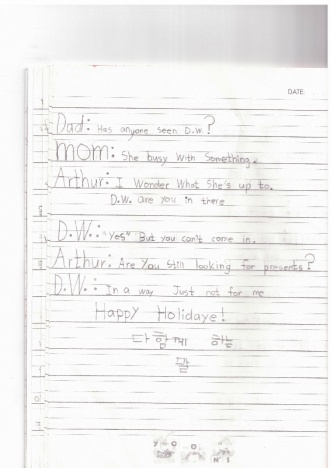 DATE
Dad: Has anyone seen D.W.?
mom: She busy With Something.
Arthur: I Wonder What She's up to.
D.W. are you in there
D.W.: "Yes" But you can't come in.
Arthur: Are You Still looking for presents?
D.W.: In a way Just not for me
Happy Holidaye!
다함께 하는